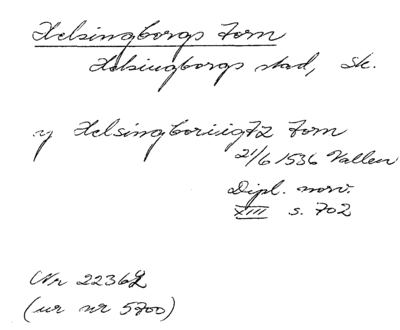 Helsingborgs Torn
Helsingborgs stad, Sk.
y Helsingboriiigtz Torn
21/6 1536 Vallen
Dipl. norv.
XIII s. 702
Nr 22362
(ur nr 5700)